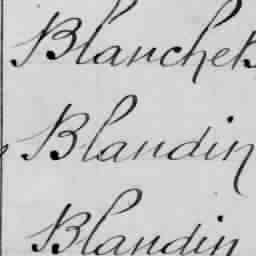 Blanchet
Blandin
Blandin